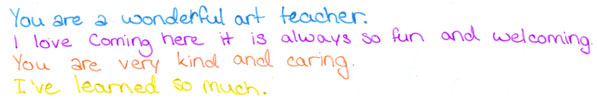 You are a wonderful art teacher.
I love coming here it is always so fun and welcoming.
You are very kind and caring.
I've learned so much.